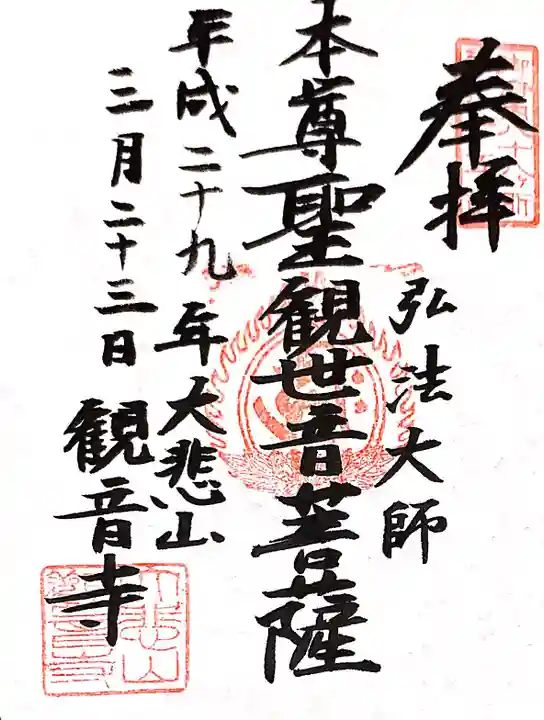 奉拝
弘法大師
本尊聖観世音菩薩
平成二十九年
三月二十三日
大悲山
観音寺